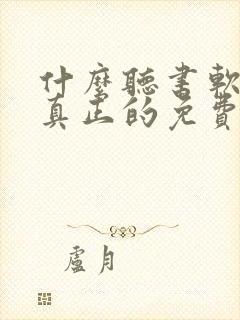 什麼聽書軟
真正的免費
盧月